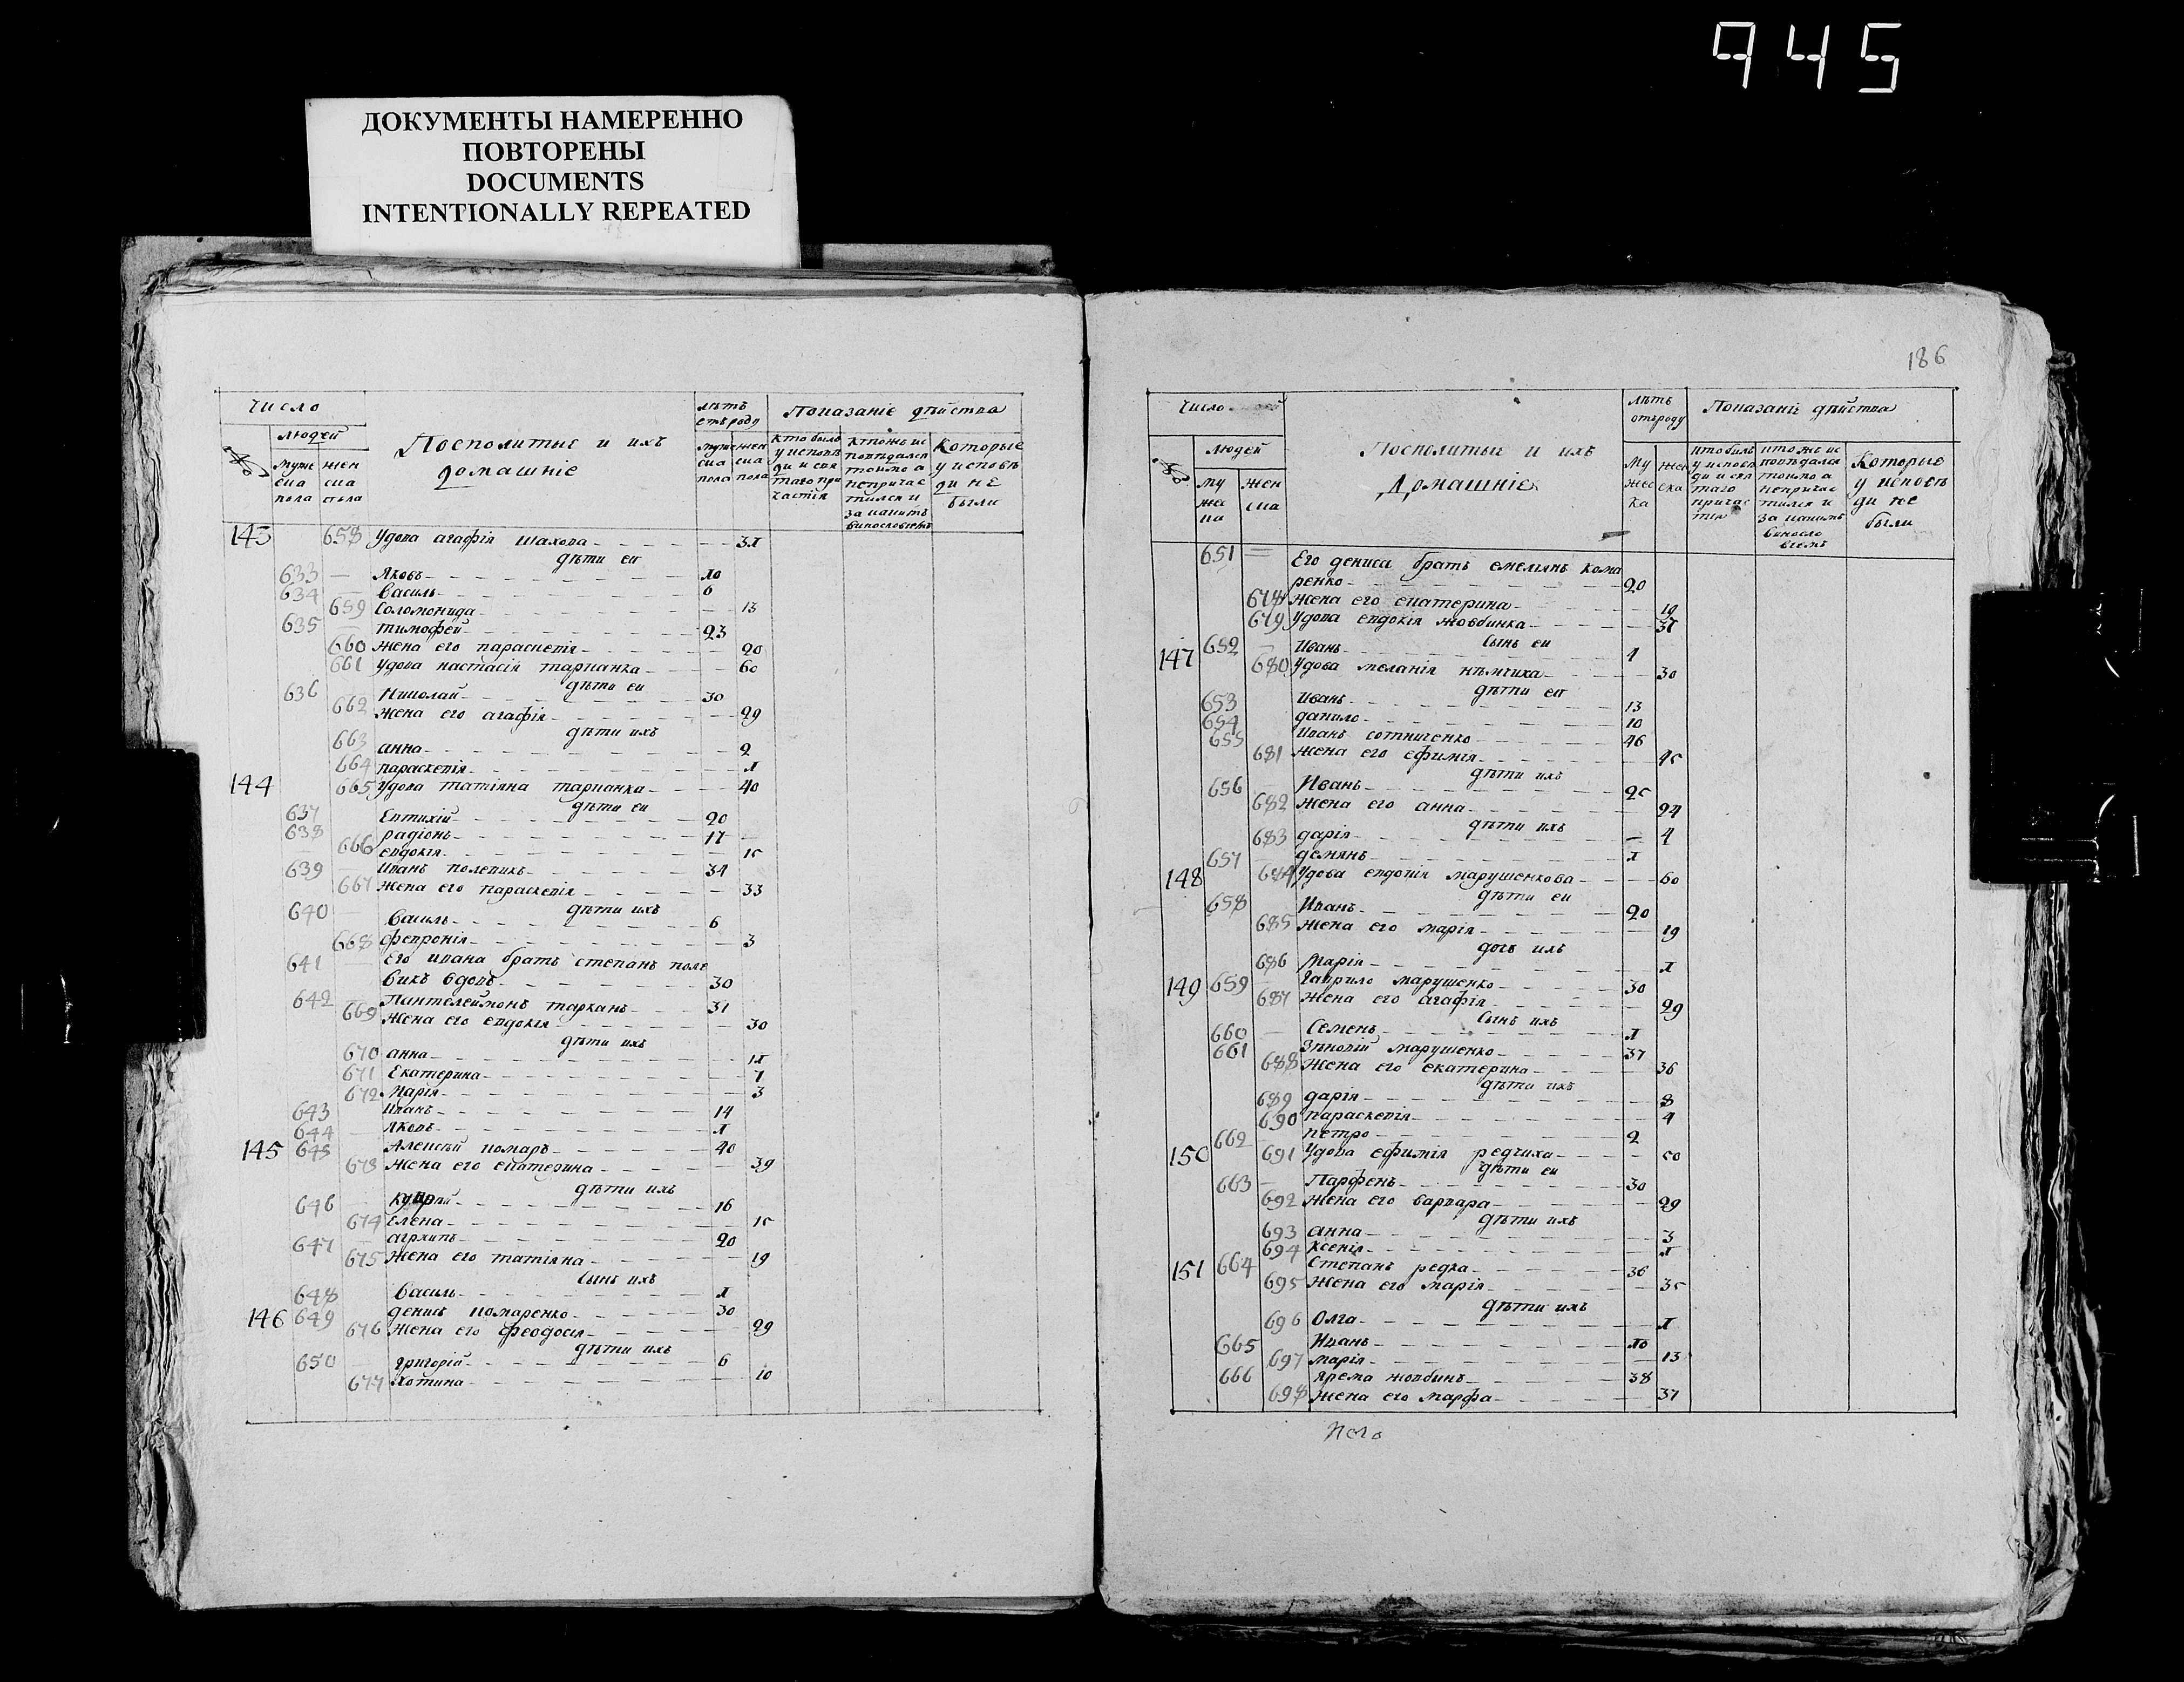 945
ДОКУМЕНТЫ НАМЕРЕННО
ПОВТОРЕНЫ
DOCUMENTS
INTENTIONALLY REPEATED
Число
людей
муже ска пола
жен ска пола
Посполитые и ихъ домашніе
лѣтъ отъ роду
муже ска пола
жен ска пола
Показаніе дѣйства
кто былъ у исповѣди и свя таго при частія
ктожъ ис повѣдался токмо а непричас тился и за какимъ винословіемъ
Которые у исповѣ ди не были
143 658 Удова агафія шахова 3Л
дѣти еи
633 Яковъ Л0
634 Василь 6
659 Соломонида 13
635 тимофей 23
660 жена его параскевія 20
661 Удова настасія тарканка 60
дѣти еи
636 Николай 30
662 жена его агафія 29
дѣти ихъ
663 анна 2
664 параскевія Л
144 665 Удова татіяна тарканка 40
дѣти еи
637 Евтихій 20
638 радіонъ 17
666 евдокія 15
639 Иванъ полевикъ 34
667 жена его параскевія 33
дѣти ихъ
640 Василь 6
668 февронія 3
641 его ивана братъ степанъ поле
викъ вдовъ 30
642 Пантелеймонъ тарканъ 31
669 жена его евдокія 30
дѣти ихъ
670 анна 1Л
671 Екатерина 7
672 Марія 3
643 Иванъ 14
644 Яковъ Л
145 645 Алексѣй комаръ 40
673 жена его екатерина 39
дѣти ихъ
646 купрѣй 16
674 елена 15
647 архипъ 20
675 жена его татіяна 19
сынъ ихъ
648 Василь Л
146 649 денисъ комаренко 30
676 жена его феодосія 29
дѣти ихъ
650 григорій 6
677 хотина 10
186
Число
людей
му жес ка
жен ска
Посполитые и ихъ Домашніе
лѣтъ отъ роду
му жес ка
жен ска
Показаніе дѣйства
кто былъ у исповѣ ди и свя таго причас тія
кто же ис повѣдался токмо а непричас тился и за какимъ виносло віемъ
Которые у исповѣ ди не были
651 Его дениса братъ емелянъ кома
ренко 20
678 жена его екатерина 19
679 Удова евдокія жовбинка 37
сынъ еи
652 Иванъ 4
147 680 Удова меланія нѣмчиха 30
дѣти еи
653 Иванъ 13
654 данило 10
655 Иванъ сотниченко 46
681 жена его ефимія 45
дѣти ихъ
656 Иванъ 25
682 жена его анна 24
дѣти ихъ
683 дарія 4
657 демянъ Л
148 684 Удова евдокія марушенкова 60
дѣти еи
658 Иванъ 20
685 жена его марія 19
дочь ихъ
686 Марія Л
149 659 Гаврило марушенко 30
687 жена его агафія 29
сынъ ихъ
660 Семенъ Л
661 Зѣновій марушенко 37
688 жена его екатерина 36
дѣти ихъ
689 дарія 8
690 параскевія 4
662 петро 2
150 691 Удова ефимія редчиха 50
дѣти еи
663 Парфенъ 30
692 жена его варвара 29
дѣти ихъ
693 анна 3
694 ксенія Л
151 664 Степанъ редка 36
695 жена его марія 35
дѣти ихъ
696 Олга Л
665 Иванъ Л0
697 марія 13
666 ярема жовбинъ 38
698 жена его марфа 37